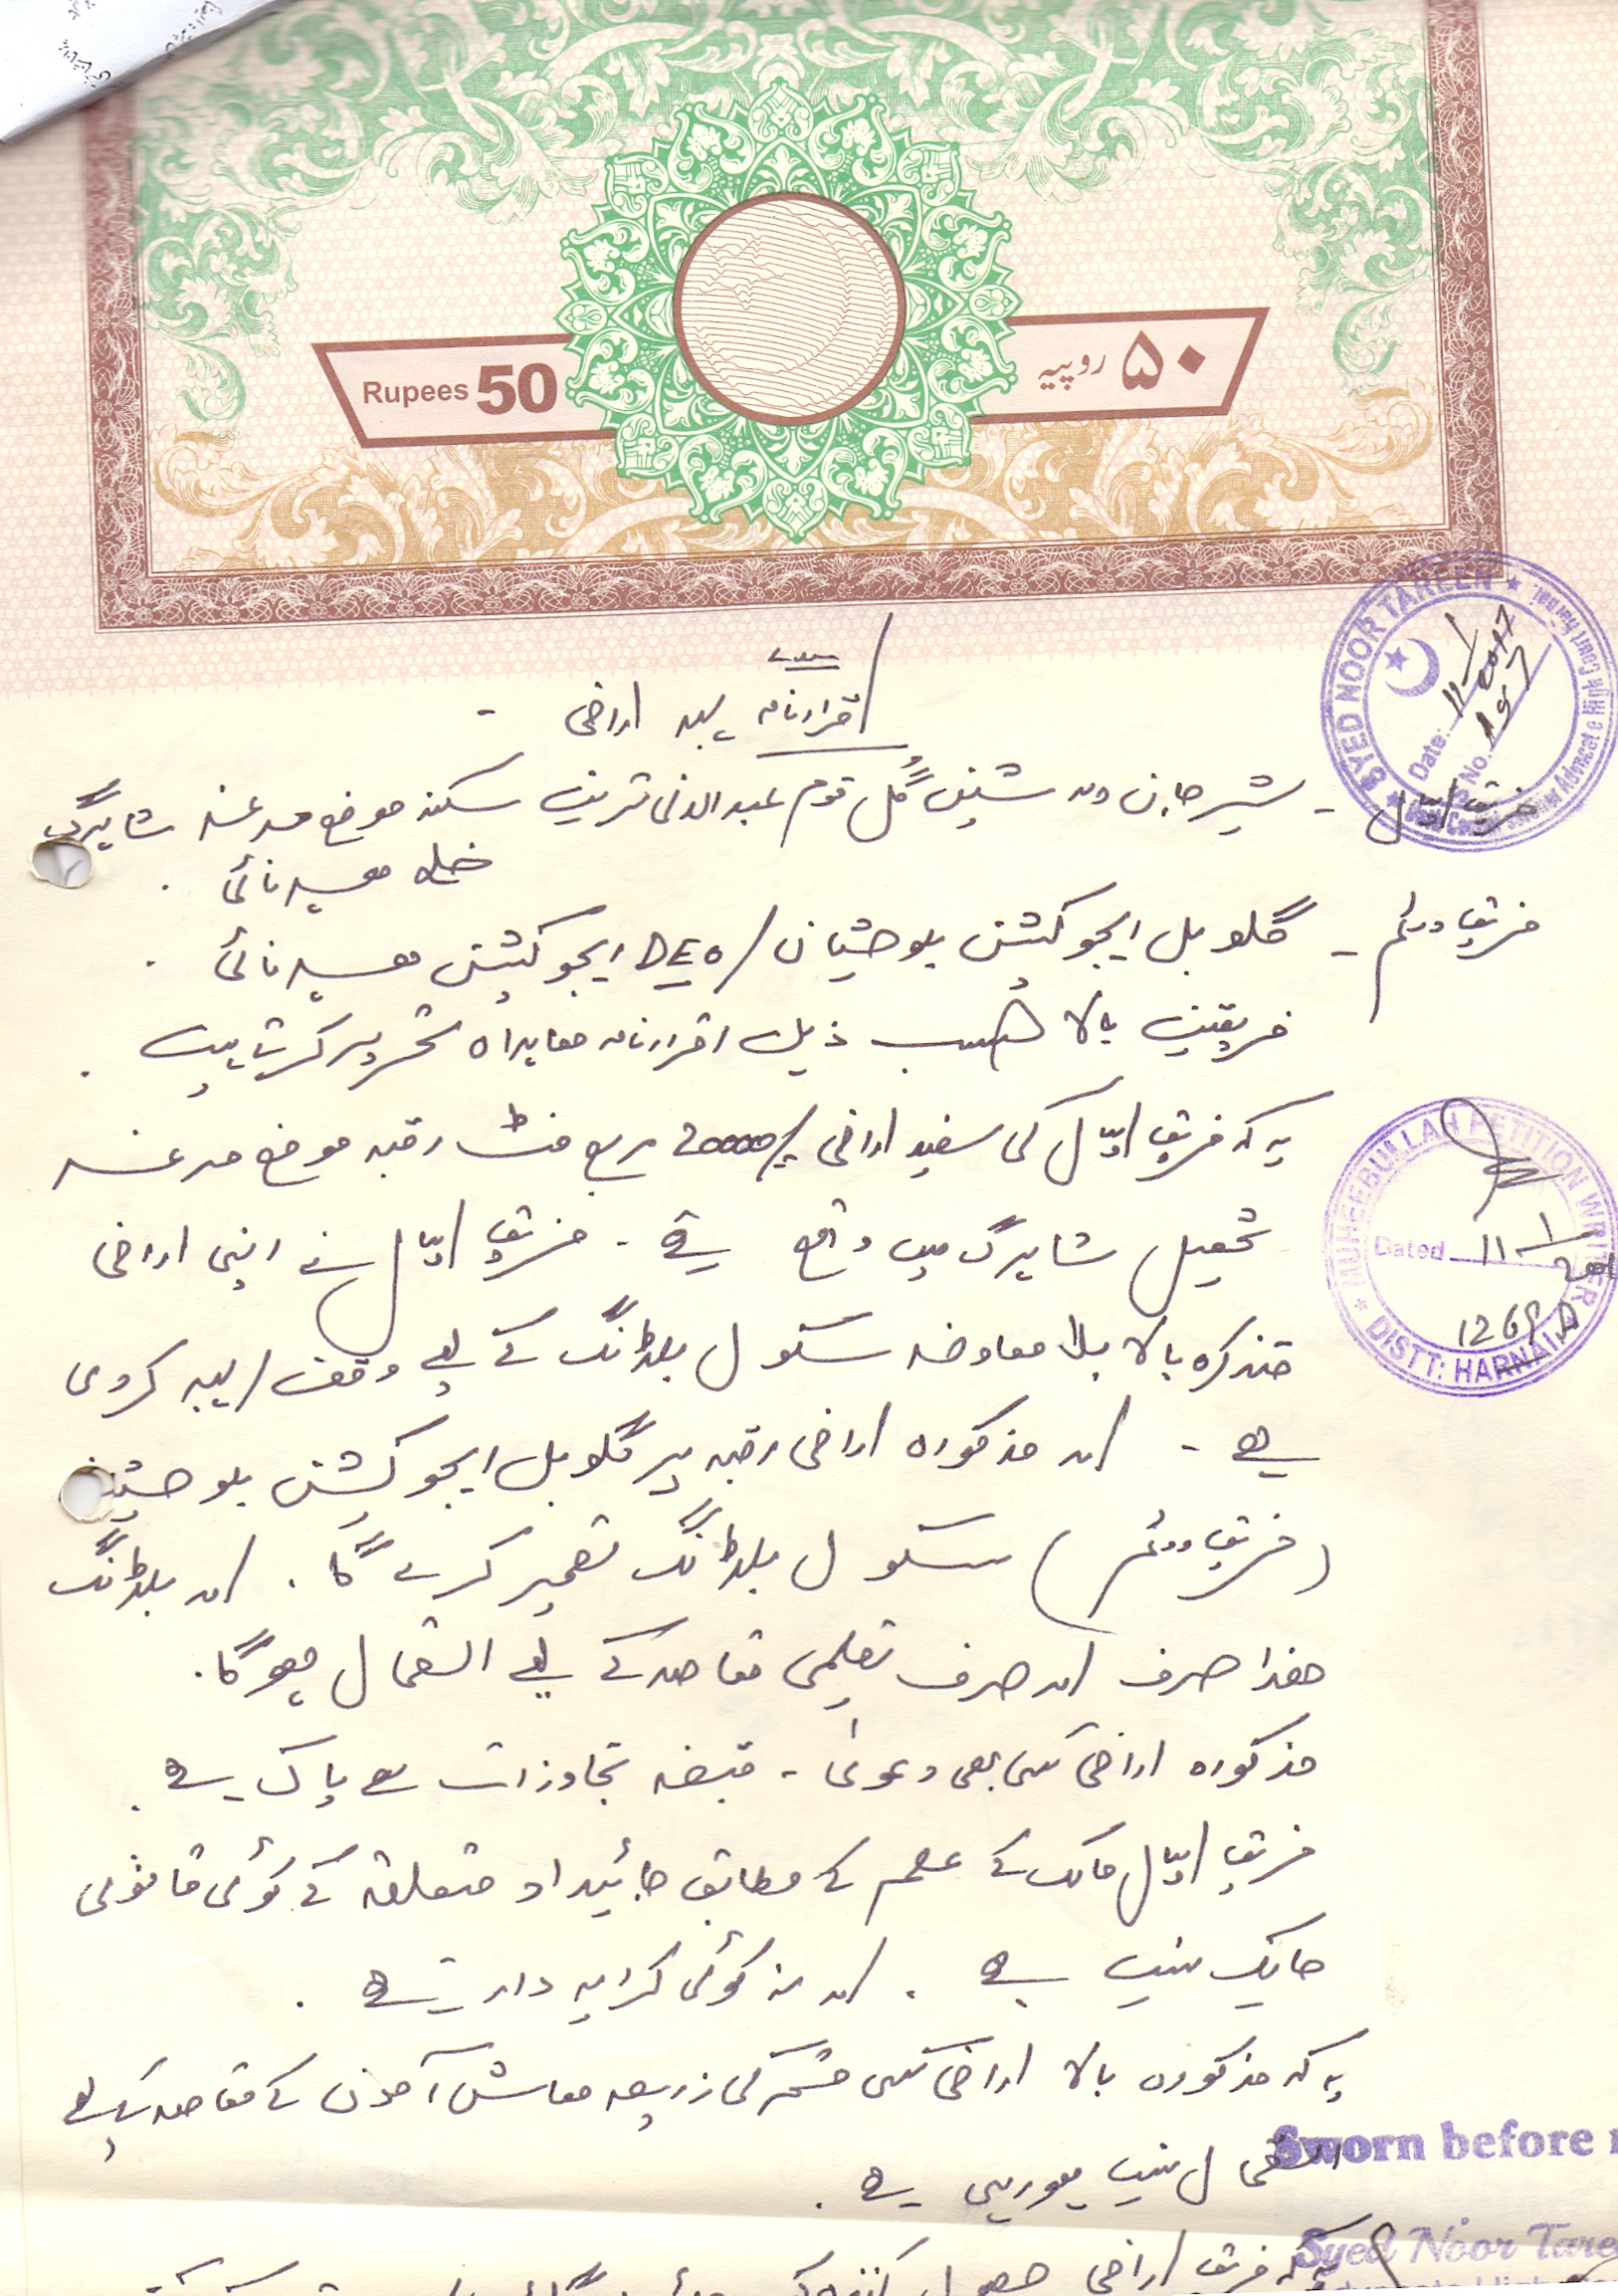 Rupees 50
۵۰ روپیہ
اقرارنامہ ہبہ اراضی -
SYED NOOR TAREEN
Date: 11/1/2017
S No. 157
فریق اوّل - شیرجان ولد شیرین گل قوم عبدالدنی ترین سکنہ موضع شاہرگ
ضلع ہرنائی .
فریق دوئم - گلوبل ایجوکیشن بلوچستان / DEO ایجوکیشن ہرنائی .
فریقین بالا حسب ذیل اقرارنامہ معاہدہ تحریر کرتے ہیں .
یہ کہ فریق اوّل کی سفید اراضی 20000/ مربع فٹ رقبہ موضع
تحصیل شاہرگ میں واقع ہے . فریق اوّل نے اپنی اراضی
متذکرہ بالا بلا معاوضہ سکول بلڈنگ کے لیے وقف / ہبہ کردی
ہے - اور مذکورہ اراضی رقبہ پر گلوبل ایجوکیشن بلوچستان
(فریق دوئم) سکول بلڈنگ تعمیر کرے گا . اور بلڈنگ
ھذا صرف اور صرف تعلیمی مقاصد کے لیے استعمال ہوگا.
مذکورہ اراضی کسی بھی دعویٰ - قبضہ تجاوزات سے پاک ہے .
فریق اوّل مالک کے علم کے مطابق جائیداد متعلقہ کے کوئی قانونی
نہیں ہے . اور نہ کوئی کرایہ دار ہے .
یہ کہ مذکورہ بالا اراضی کسی قسم کی ذریعہ معاش آمدن کے مقاصد کیلئے
استعمال نہیں ہورہی ہے .
MUHEEBULLAH PETITION WRITER
Dated 11/1
DISTT: HARNAI
Sworn before
Syed Noor Taree